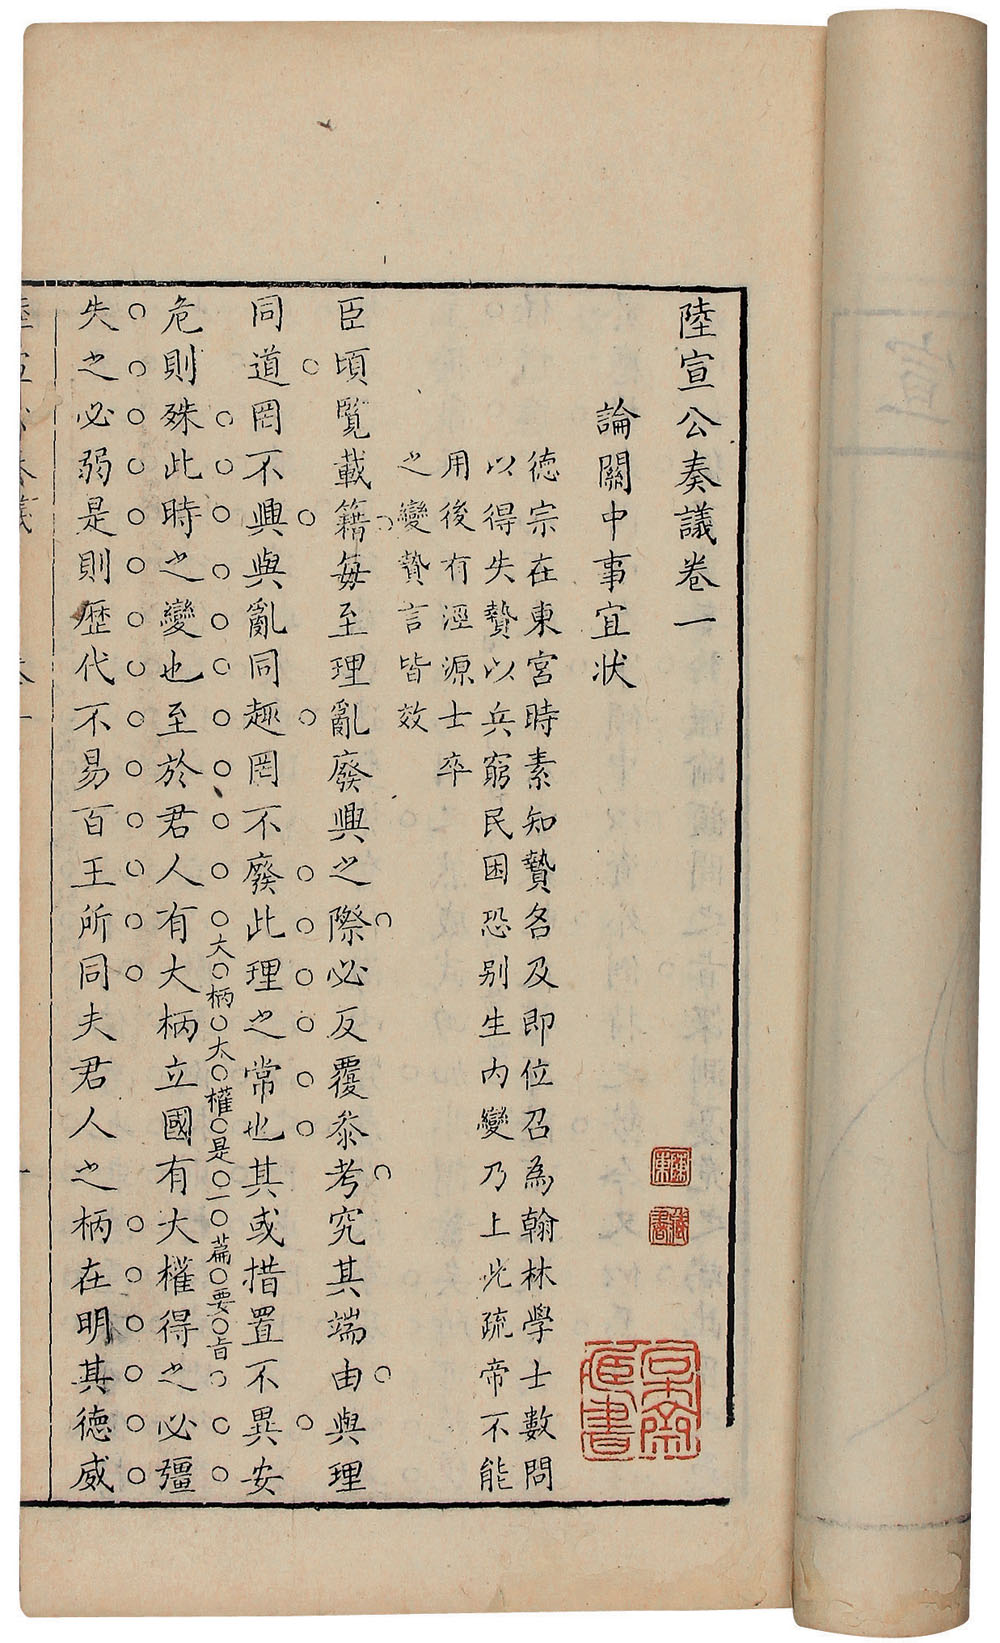 陸宣公奏議卷一
論關中事宜狀
德宗在東宮時素知贄名及即位召為翰林學士數問
以得失贄以兵窮民困恐别生內變乃上此疏帝不能
用後有涇源士卒
之變贄言皆效
臣頃覽載籍每至理亂廢興之際必反覆叅考究其端由與理
同道罔不興與亂同趣罔不廢此理之常也其或措置不異安
大柄大權是一篇要旨
危則殊此時之變也至於君人有大柄立國有大權得之必彊
失之必弱是則歷代不易百王所同夫君人之柄在明其德威